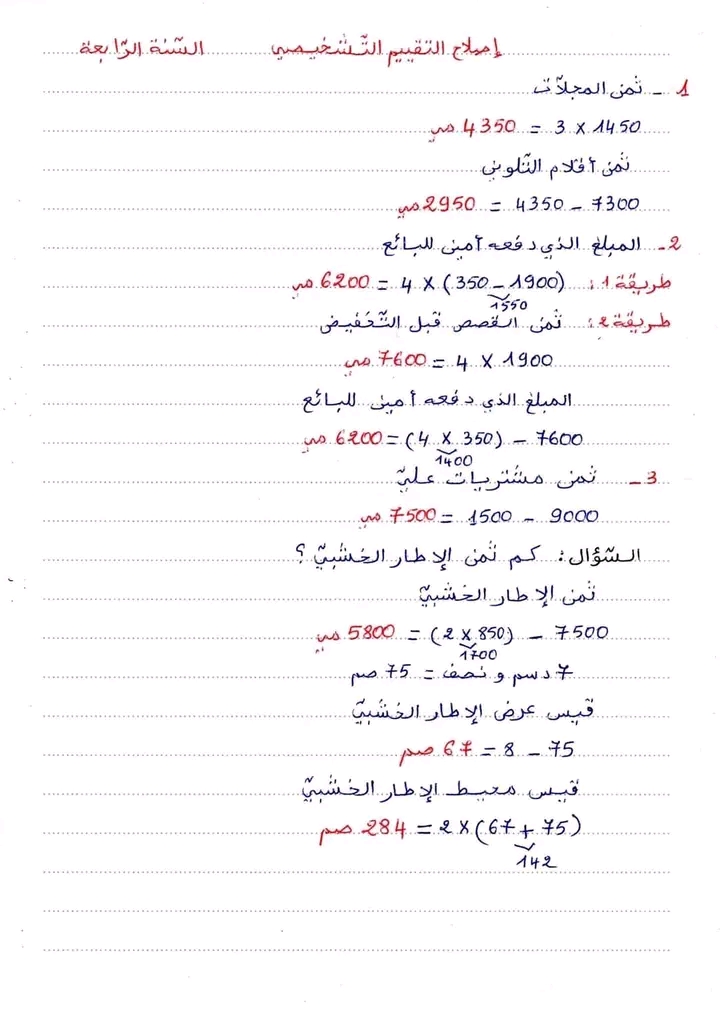 إصلاح التقييم التّشخيصي السّنة الرّابعة
1 - ثمن المجلّات
1450 × 3 = 4350 مي
ثمن أقلام التلوين
7300 - 4350 = 2950 مي
2 - المبلغ الذي دفعه أمين للبائع
طريقة 1: (1900 - 350) × 4 = 6200 مي
1550
طريقة 2: ثمن القصص قبل التّخفيض
1900 × 4 = 7600 مي
المبلغ الذي دفعه أمين للبائع
7600 - (350 × 4) = 6200 مي
1400
3 - ثمن مشتريات عليّ
9000 - 1500 = 7500 مي
السّؤال: كم ثمن الإطار الخشبيّ؟
ثمن الإطار الخشبيّ
7500 - (850 × 2) = 5800 مي
1700
7 دسم و نصف = 75 صم
قيس عرض الإطار الخشبيّ
75 - 8 = 67 صم
قيس محيط الإطار الخشبيّ
(75 + 67) × 2 = 284 صم
142